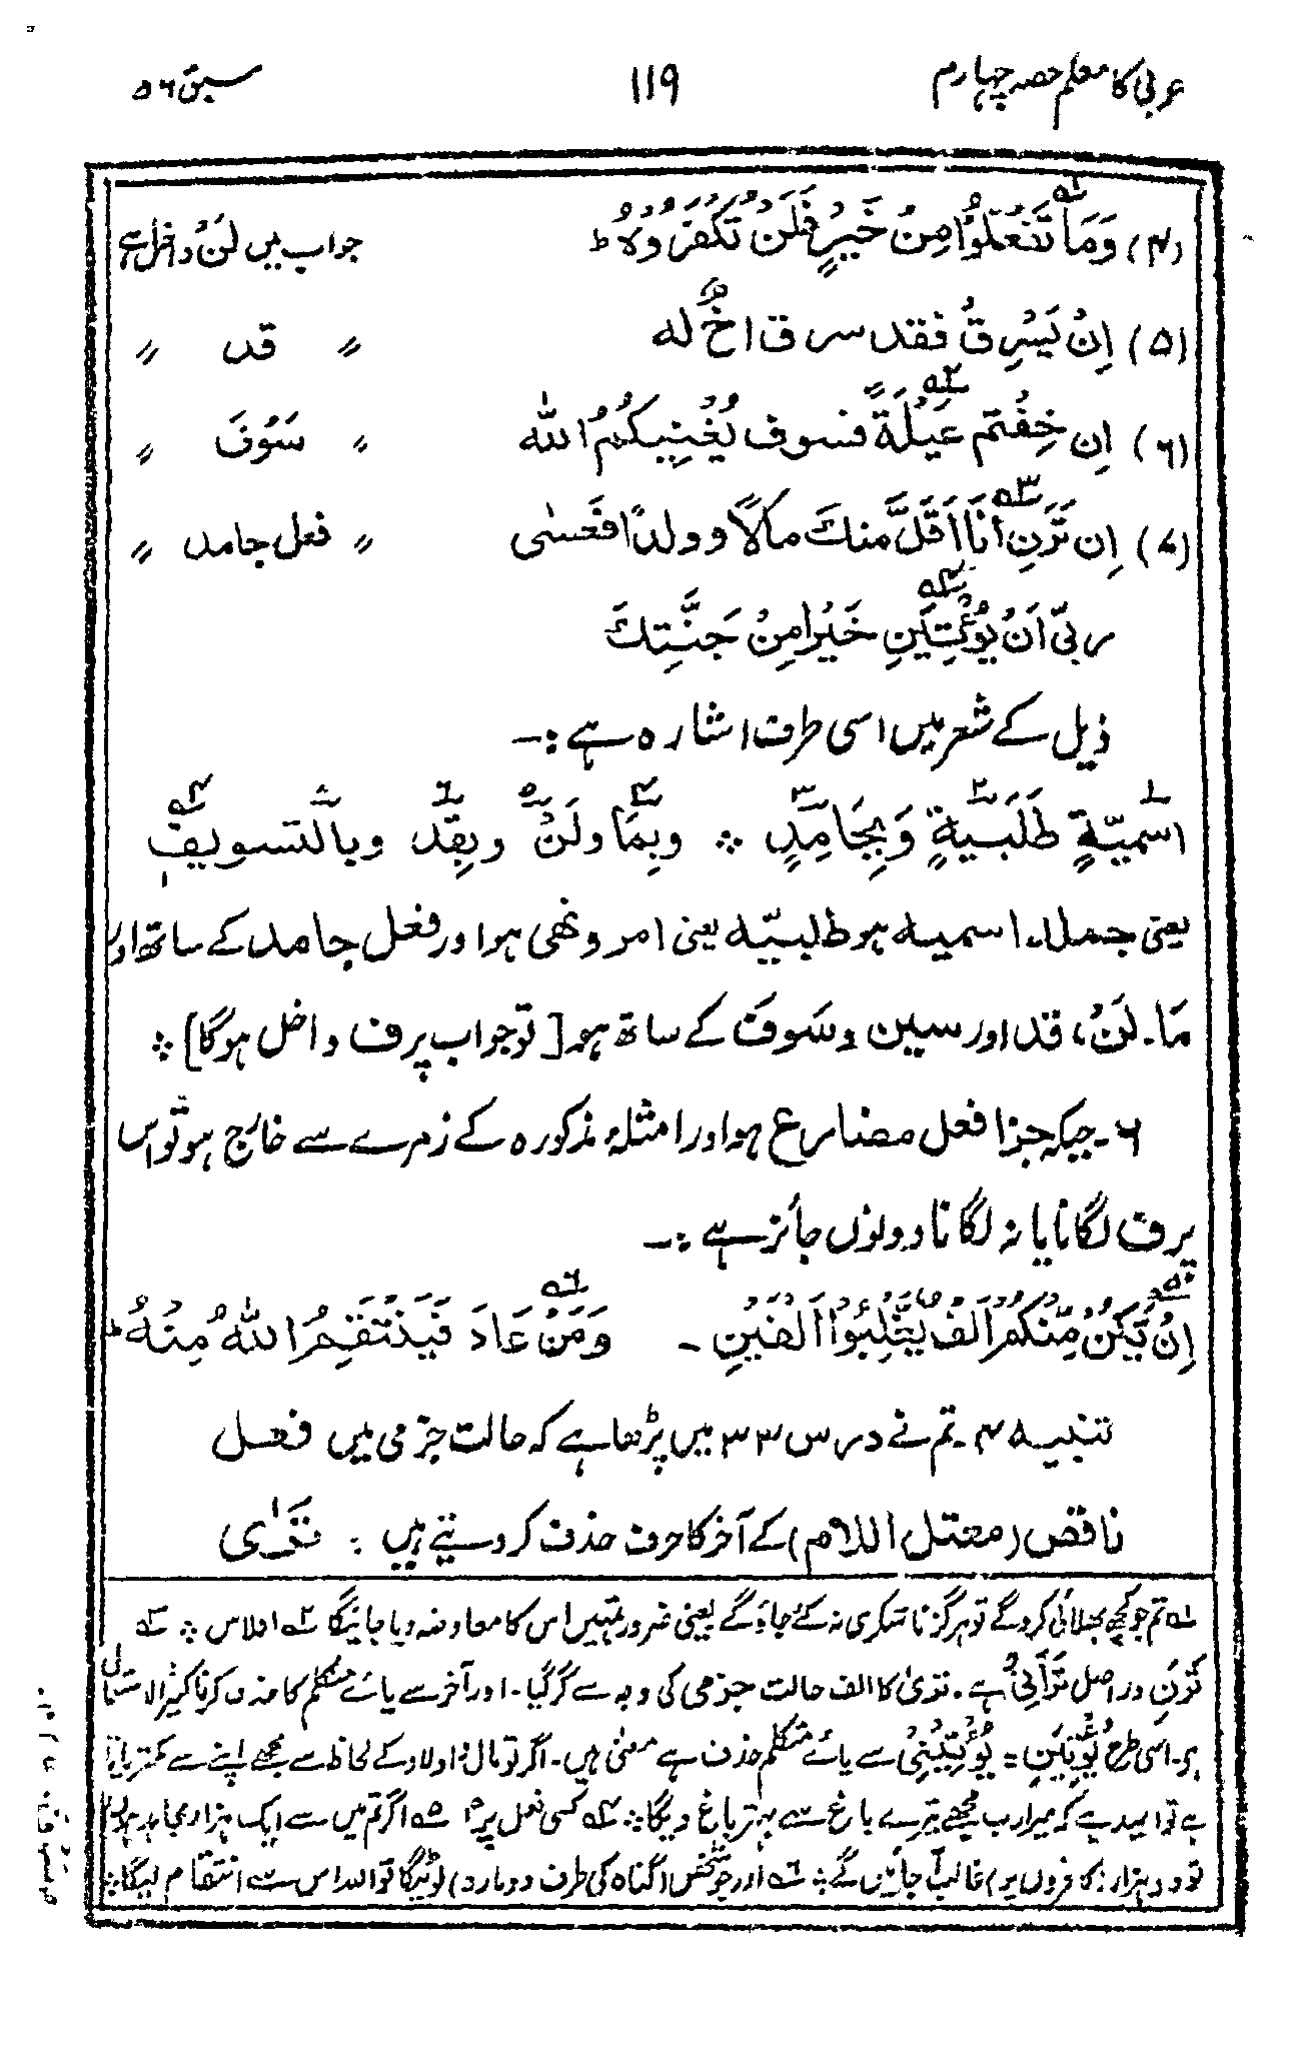 عربی کا معلم حصہ چہارم ۱۱۹ سبق ۵۶
(۴) وَمَا تَفْعَلُوْا مِنْ خَيْرٍ فَلَنْ تُكْفَرُوْهُ ط جواب میں لَنْ داخل ہے
(۵) اِنْ يَسْرِقْ فقد سرق اخٌ له 〃 قد 〃
(۶) اِن خِفْتم عَيْلَةً فسوف يُغْنِيكُمُ الله 〃 سَوْفَ 〃
(۷) اِن تَرَنِ اَنَا اَقَلَّ منكَ مالًا وولدًا فَعَسٰى 〃 فعل جامد 〃
ربّی اَنْ يُؤْتِيَنِ خَيْرًا مِنْ جَنَّتِكَ
ذیل کے شعر میں اسی طرف اشارہ ہے :۔
اسْمِيّةٍ طَلَبِيةٍ وَبِجَامِدٍ ؞ وبِمَا ولَنْ وبِقَدْ وبالتسويفِ
یعنی جملہ اسمیہ ہو طلبیّہ یعنی امر و نہی ہو اور فعل جامد کے ساتھ اور
مَا۔ لَنْ، قد اور سین و سَوفَ کے ساتھ ہو [تو جواب پر ف داخل ہوگا] ؞
۶۔ جبکہ جزا فعل مضارع ہو اور امثلۂ مذکورہ کے زمرے سے خارج ہو تو اس
پر ف لگانا یا نہ لگانا دونوں جائز ہے :۔
اِنْ يَكُنْ مِّنْكُمْ اَلْفٌ يَّغْلِبُوْا اَلْفَيْنِ ۔ وَمَنْ عَادَ فَيَنْتَقِمُ اللهُ مِنْهُ ط
تنبیہ ۴۔ تم نے درس ۳۳ میں پڑھا ہے کہ حالت جزمی میں فعل
ناقص (معتل اللام) کے آخر کا حرف حذف کر دیتے ہیں : تَرٰی
۱ تم جو کچھ بھلائی کرو گے تو ہرگز ناشکری نہ کئے جاؤ گے یعنی ضرور تمہیں اس کا معاوضہ دیا جائیگا ۲ افلاس ؞ ۳
تَرَنِ دراصل تَرَانِیْ ہے۔ تریٰ کا الف حالت جزمی کی وجہ سے گر گیا۔ اور آخر سے یائے متکلم کا حذف کرنا کثیر الاستعمال
ہے۔ اسی طرح يُؤْتِيَنِ = يُؤْتِيَنِيْ سے یائے متکلم حذف ہے معنی ہیں۔ اگر تو مال و اولاد کے لحاظ سے مجھے اپنے سے کمتر پاتا
ہے تو امید ہے کہ میرا رب مجھے تیرے باغ سے بہتر باغ دیگا ؞ ۴ کسی فعل پر ۵ اگر تم میں سے ایک ہزار مجاہد ہوں
تو دو ہزار (کافروں پر) غالب آجائیں گے ؞ ۶ اور جو شخص (گناہ کی طرف دوبارہ) لوٹیگا تو اللہ اس سے انتقام لیگا ؞